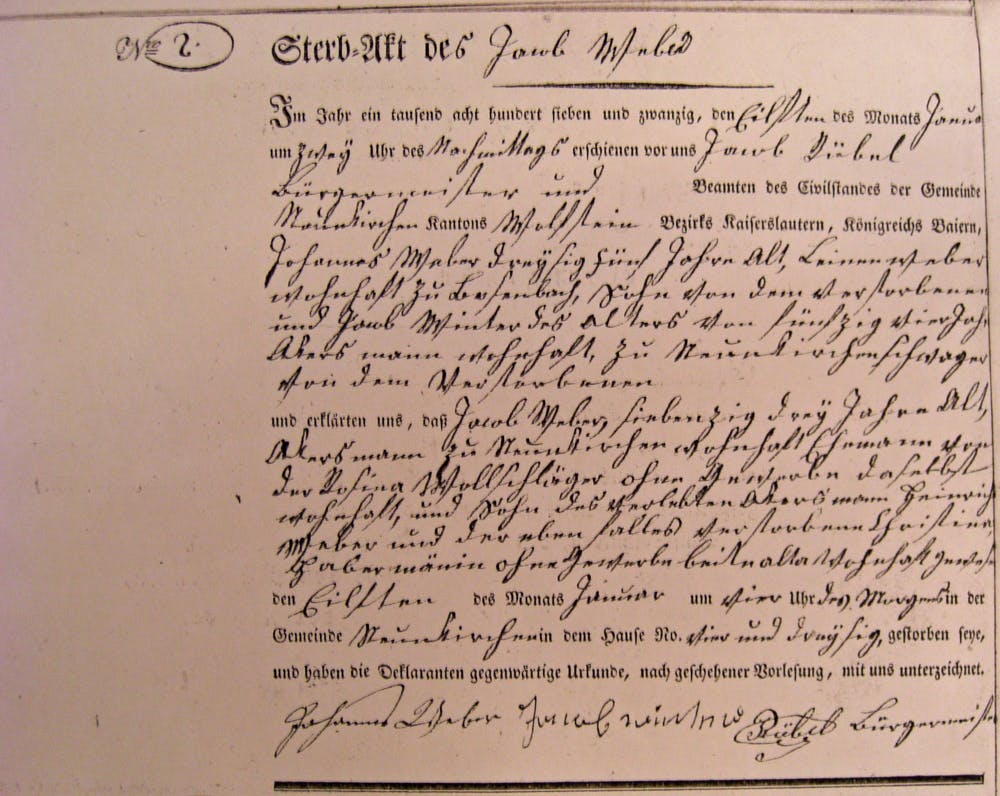 Nro 2.
Sterb-Akt des Jacob Weber
Im Jahr ein tausend acht hundert sieben und zwanzig, den Eilften des Monats Januar
um zwey Uhr des Nachmittags erschienen vor uns Jacob Rübel
Bürgermeister und Beamten des Civilstandes der Gemeinde
Neunkirchen Kantons Wolfstein Bezirks Kaiserslautern, Königreichs Baiern,
Johannes Weber dreysig fünf Jahre Alt, Leinenweber
wohnhaft zu Bosenbach, Sohn von dem verstorbenen
und Jacob Winter des Alters von fünfzig vier Jahr
Akersmann wohnhaft, zu Neunkirchen schwager
von dem Verstorbenen
und erklärten uns, daß Jacob Weber, siebenzig drey Jahre Alt,
Akersmann zu Neunkirchen wohnhaft Ehemann von
der Rosina Wollschläger ohne Gewerbe daselbst
wohnhaft, und Sohn des verlebten Akersmann Heinrich
Weber und der eben falles verstorbene Christina
Habermänin ohne Gewerbe beite alta wohnhaft gewese
den Eilften des Monats Januar um vier Uhr des Morgens in der
Gemeinde Neunkirchen in dem Hause No. vier und dreysig, gestorben seye,
und haben die Deklaranten gegenwärtige Urkunde, nach geschehener Vorlesung, mit uns unterzeichnet.
Johannes Weber Jacob winter Rübel Bürgermeister